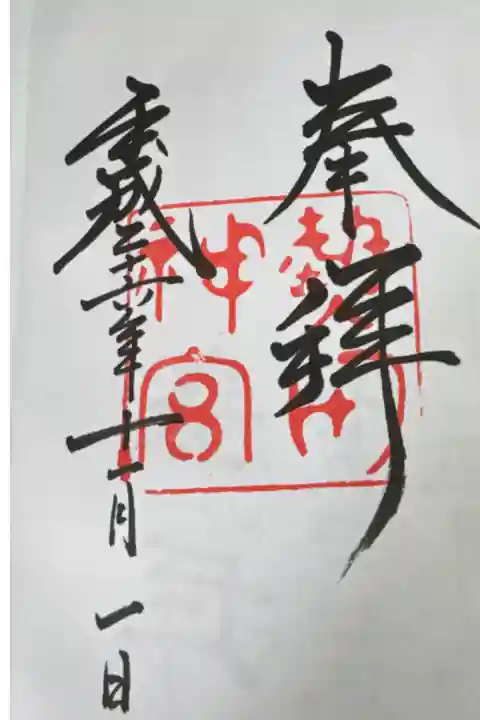 奉拝
熱田
神宮
平成二十六年十一月一日